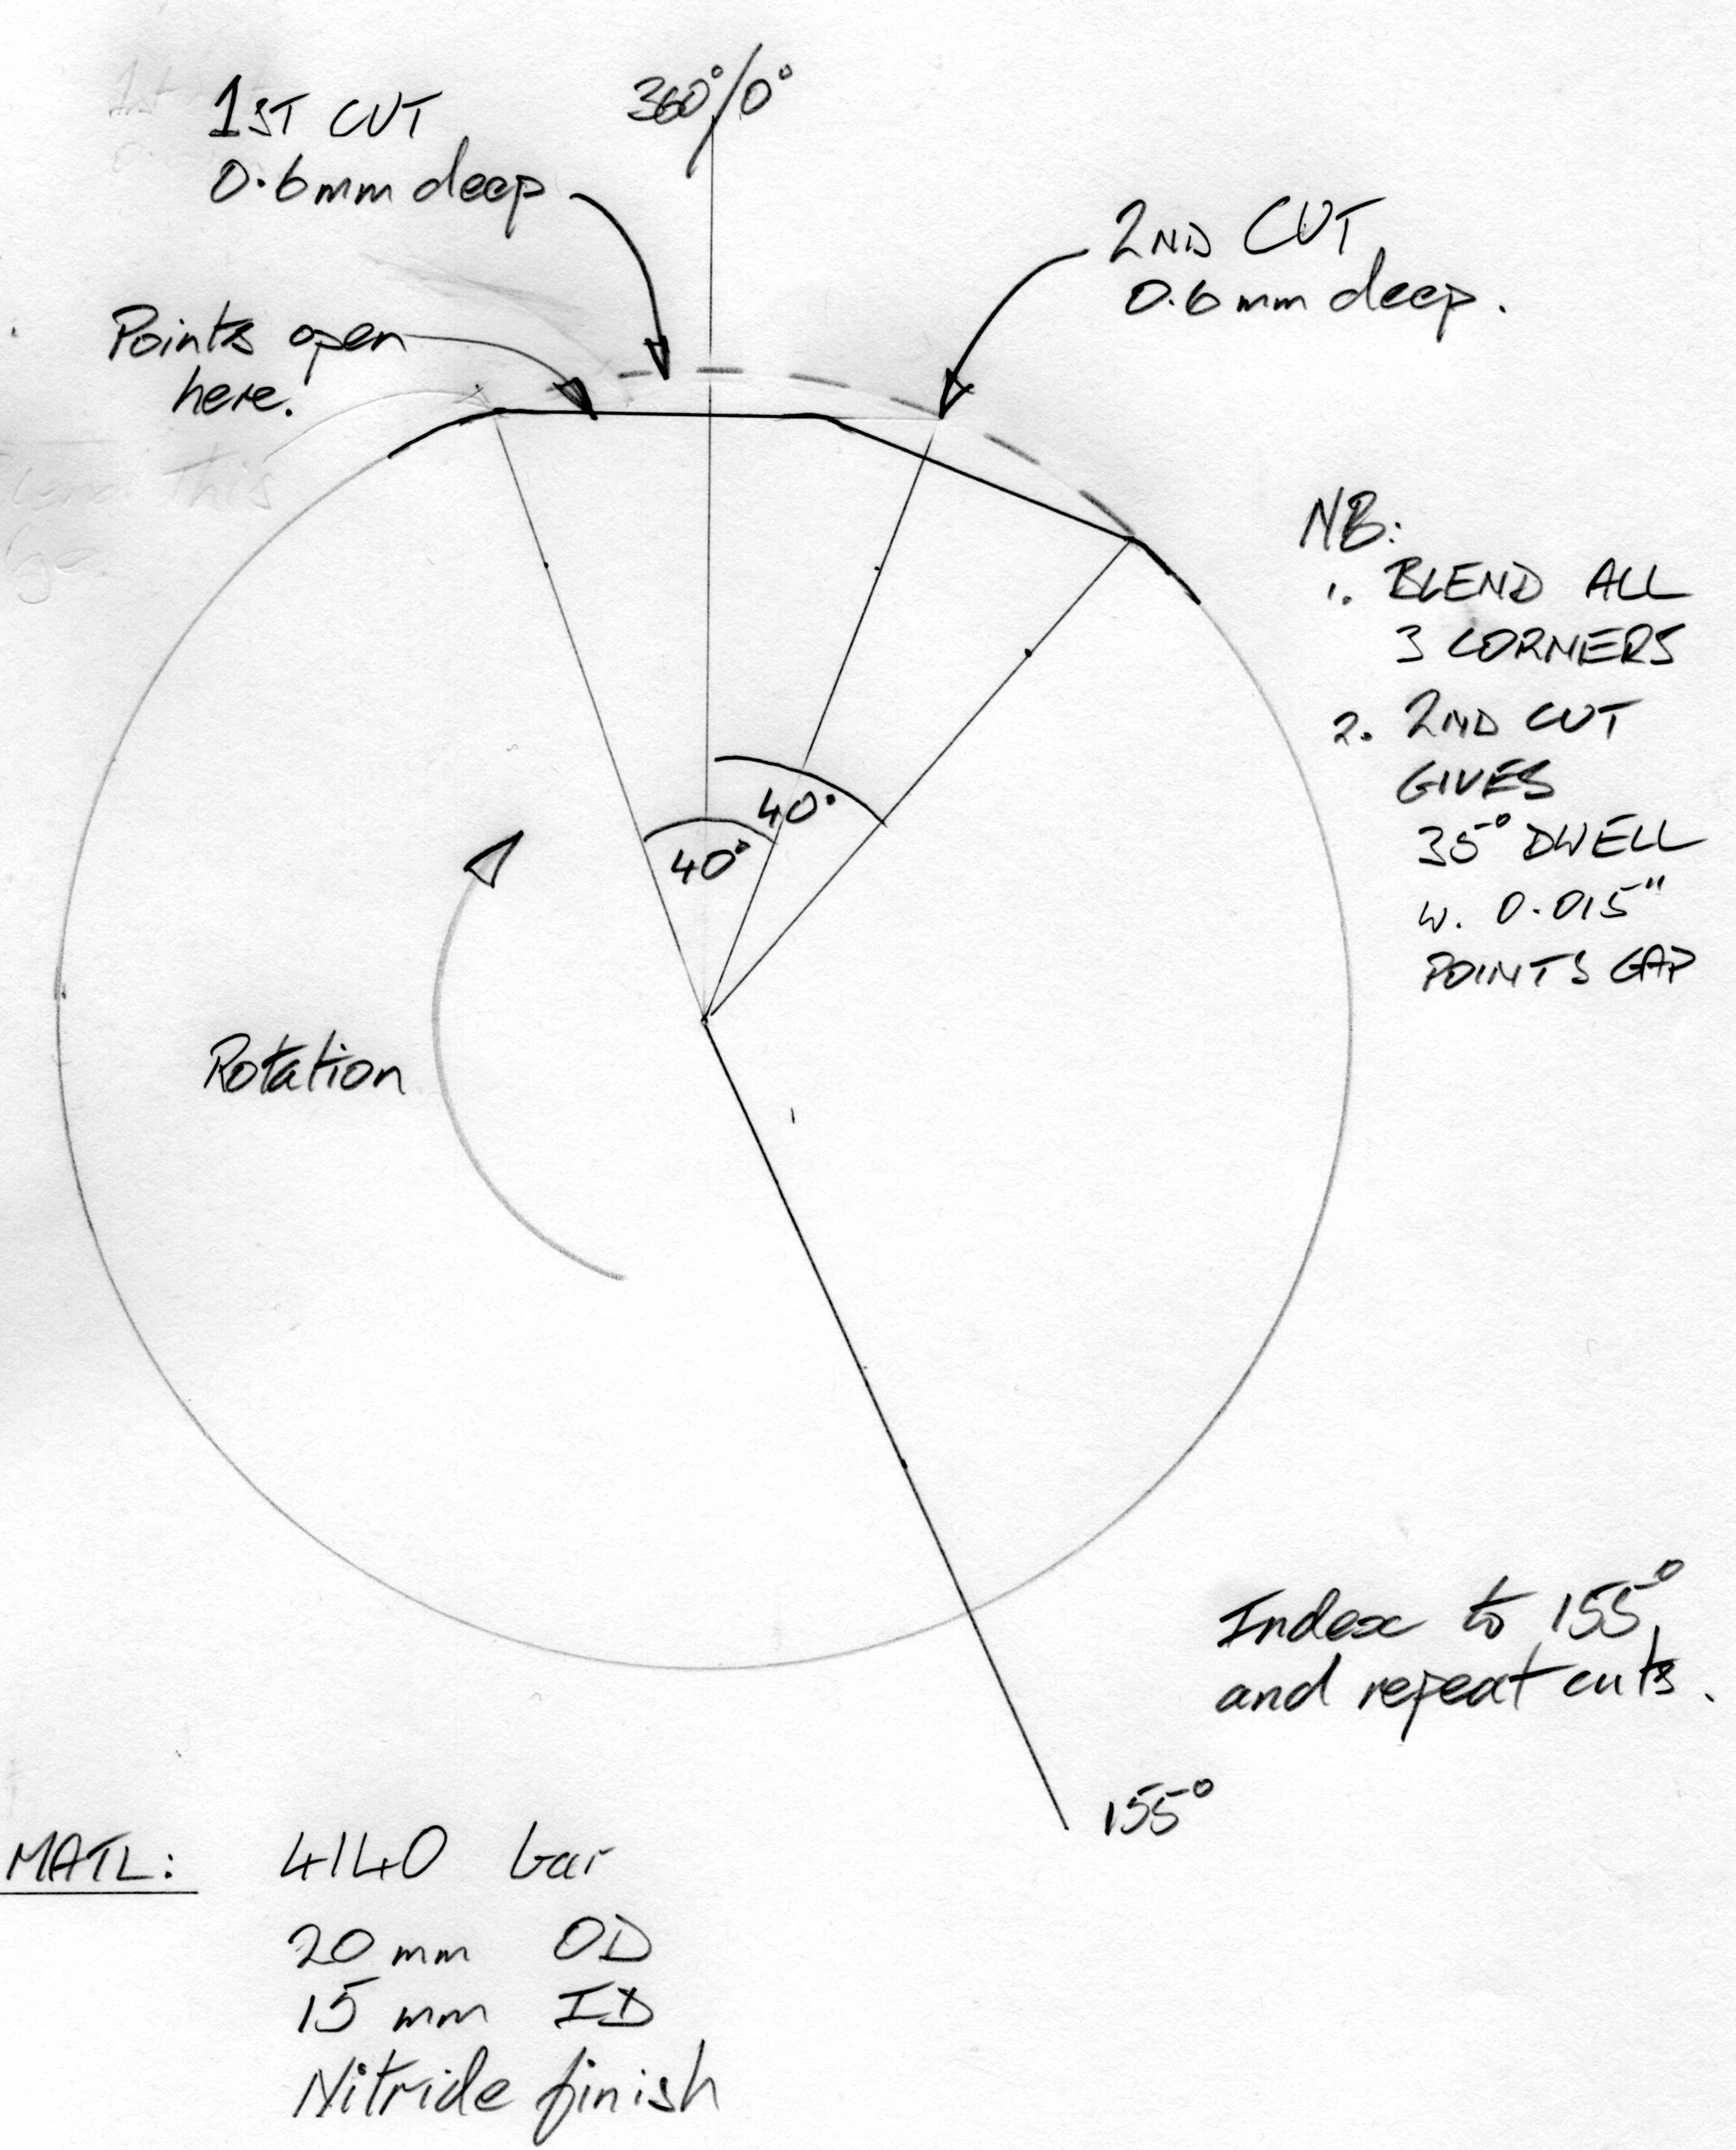 360°/0°
1ST CUT
0.6mm deep
2ND CUT
0.6mm deep.
Points open
here.
NB:
1. BLEND ALL
3 CORNERS
2. 2ND CUT
GIVES
35° DWELL
w. 0.015"
POINTS GAP
40°
40°
Rotation
Index to 155°
and repeat cuts.
155°
MATL: 4140 bar
20 mm OD
15 mm ID
Nitride finish